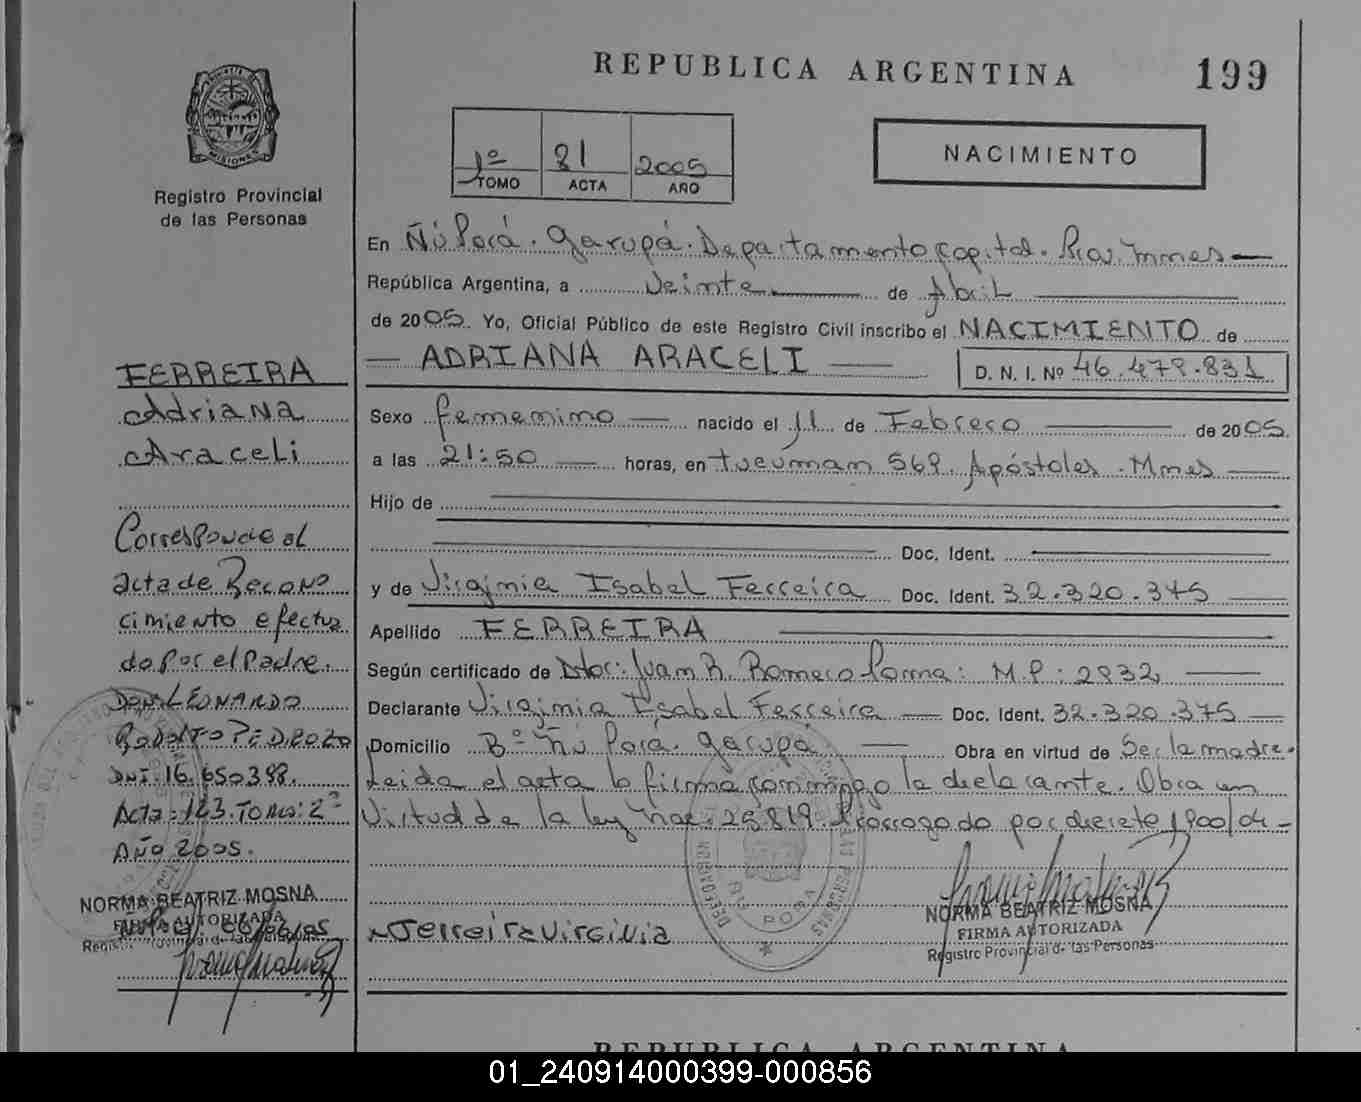 REPUBLICA ARGENTINA
199
MISIONES
Registro Provincial
de las Personas
1º 81 2005
TOMO ACTA AÑO
NACIMIENTO
En Ñú Porá. Garupá. Departamento Capital. Mnes
República Argentina, a Veinte de Abril
de 2005. Yo, Oficial Público de este Registro Civil inscribo el NACIMIENTO de
ADRIANA ARACELI D. N. I. Nº 46.479.831
Sexo femenino nacido el 11 de Febrero de 2005
a las 21:50 horas, en tucuman 569. Apóstoles. Mnes
Hijo de
Doc. Ident.
y de Virginia Isabel Ferreira Doc. Ident. 32.320.375
Apellido FERREIRA
Según certificado de Juan R. Romero M.P: 2932
Declarante Virginia Isabel Ferreira Doc. Ident. 32.320.375
Domicilio Bº Ñú Porá. Garupá Obra en virtud de Ser la madre.
Leida el acta la firma conmigo la declarante. Obra en
Virtud de la ley nac: 25819. Prorrogado por decreto 1900/04
Ferreira Virginia
NORMA BEATRIZ MOSNA
FIRMA AUTORIZADA
Registro Provincial de las Personas
FERREIRA
Adriana
Araceli
Corresponde al
acta de Recono
cimiento efectua
do por el Padre.
Don LEONARDO
RODOLFO PEDROZO
DNI. 16.650.398.
Acta: 123. Tomo: 2º
Año 2005.
NORMA BEATRIZ MOSNA
FIRMA AUTORIZADA
REPUBLICA ARGENTINA
01_240914000399-000856